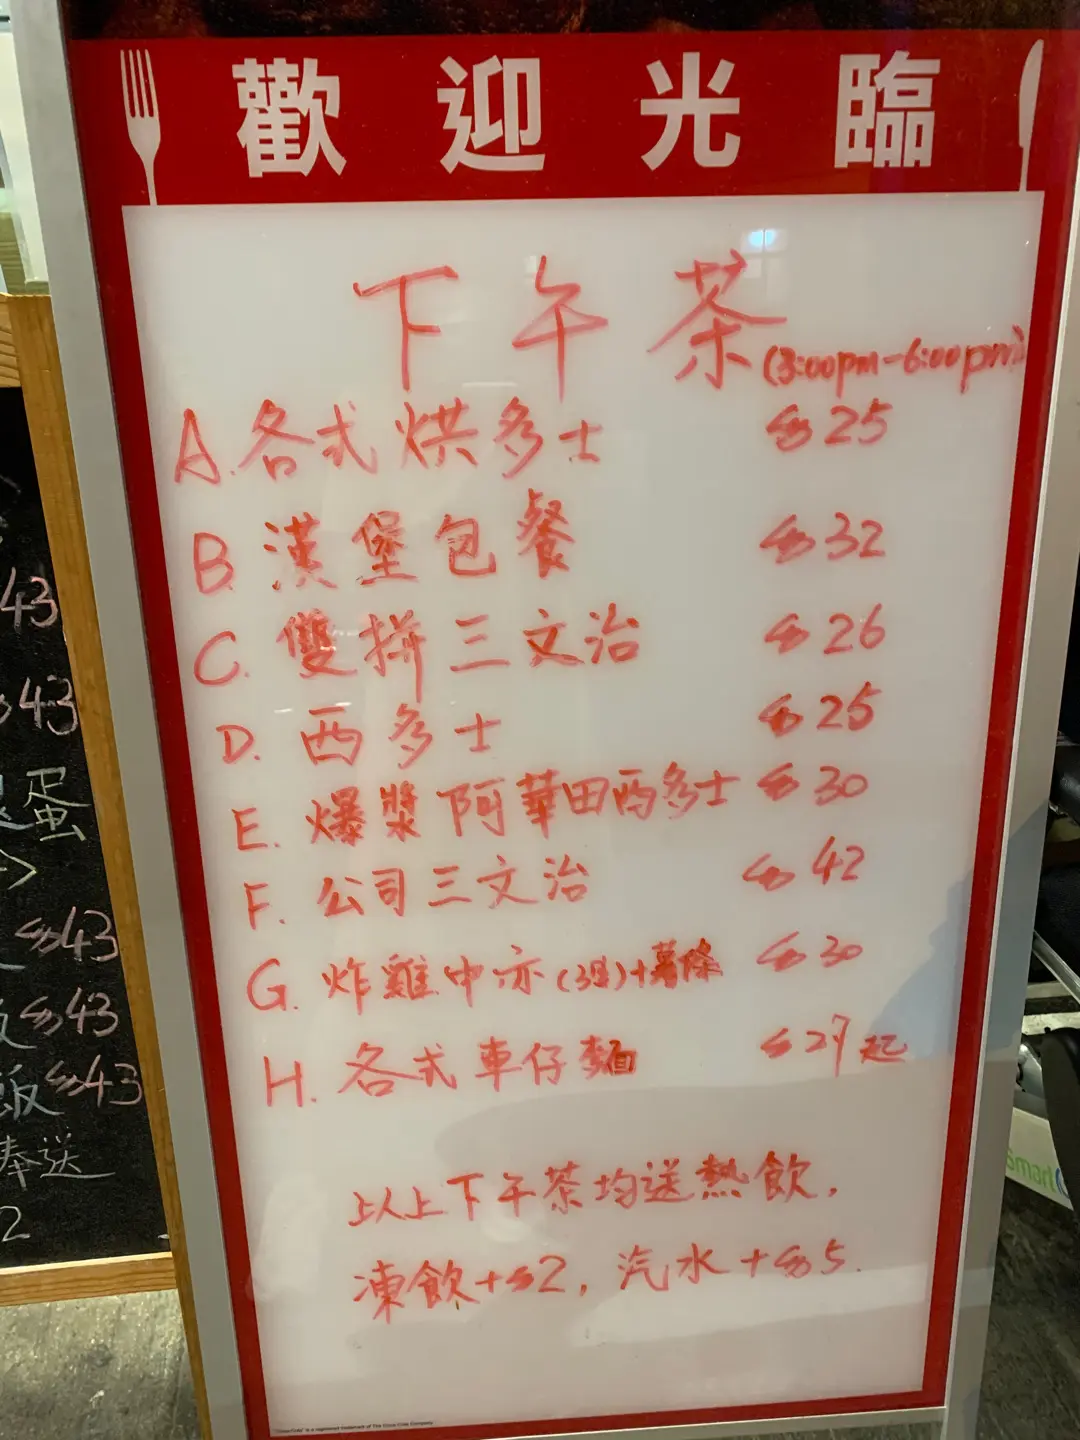 歡迎光臨
下午茶 (3:00pm-6:00pm)
A. 各式烘多士 $25
B. 漢堡包餐 $32
C. 雙拼三文治 $26
D. 西多士 $25
E. 爆漿阿華田西多士 $30
F. 公司三文治 $42
G. 炸雞中亦(3隻)+薯條 $30
H. 各式車仔麵 $27起
以上下午茶均送熱飲,
凍飲+$2, 汽水+$5.
43
$43
蛋
$43
$43
飯$43
奉送
2
smart